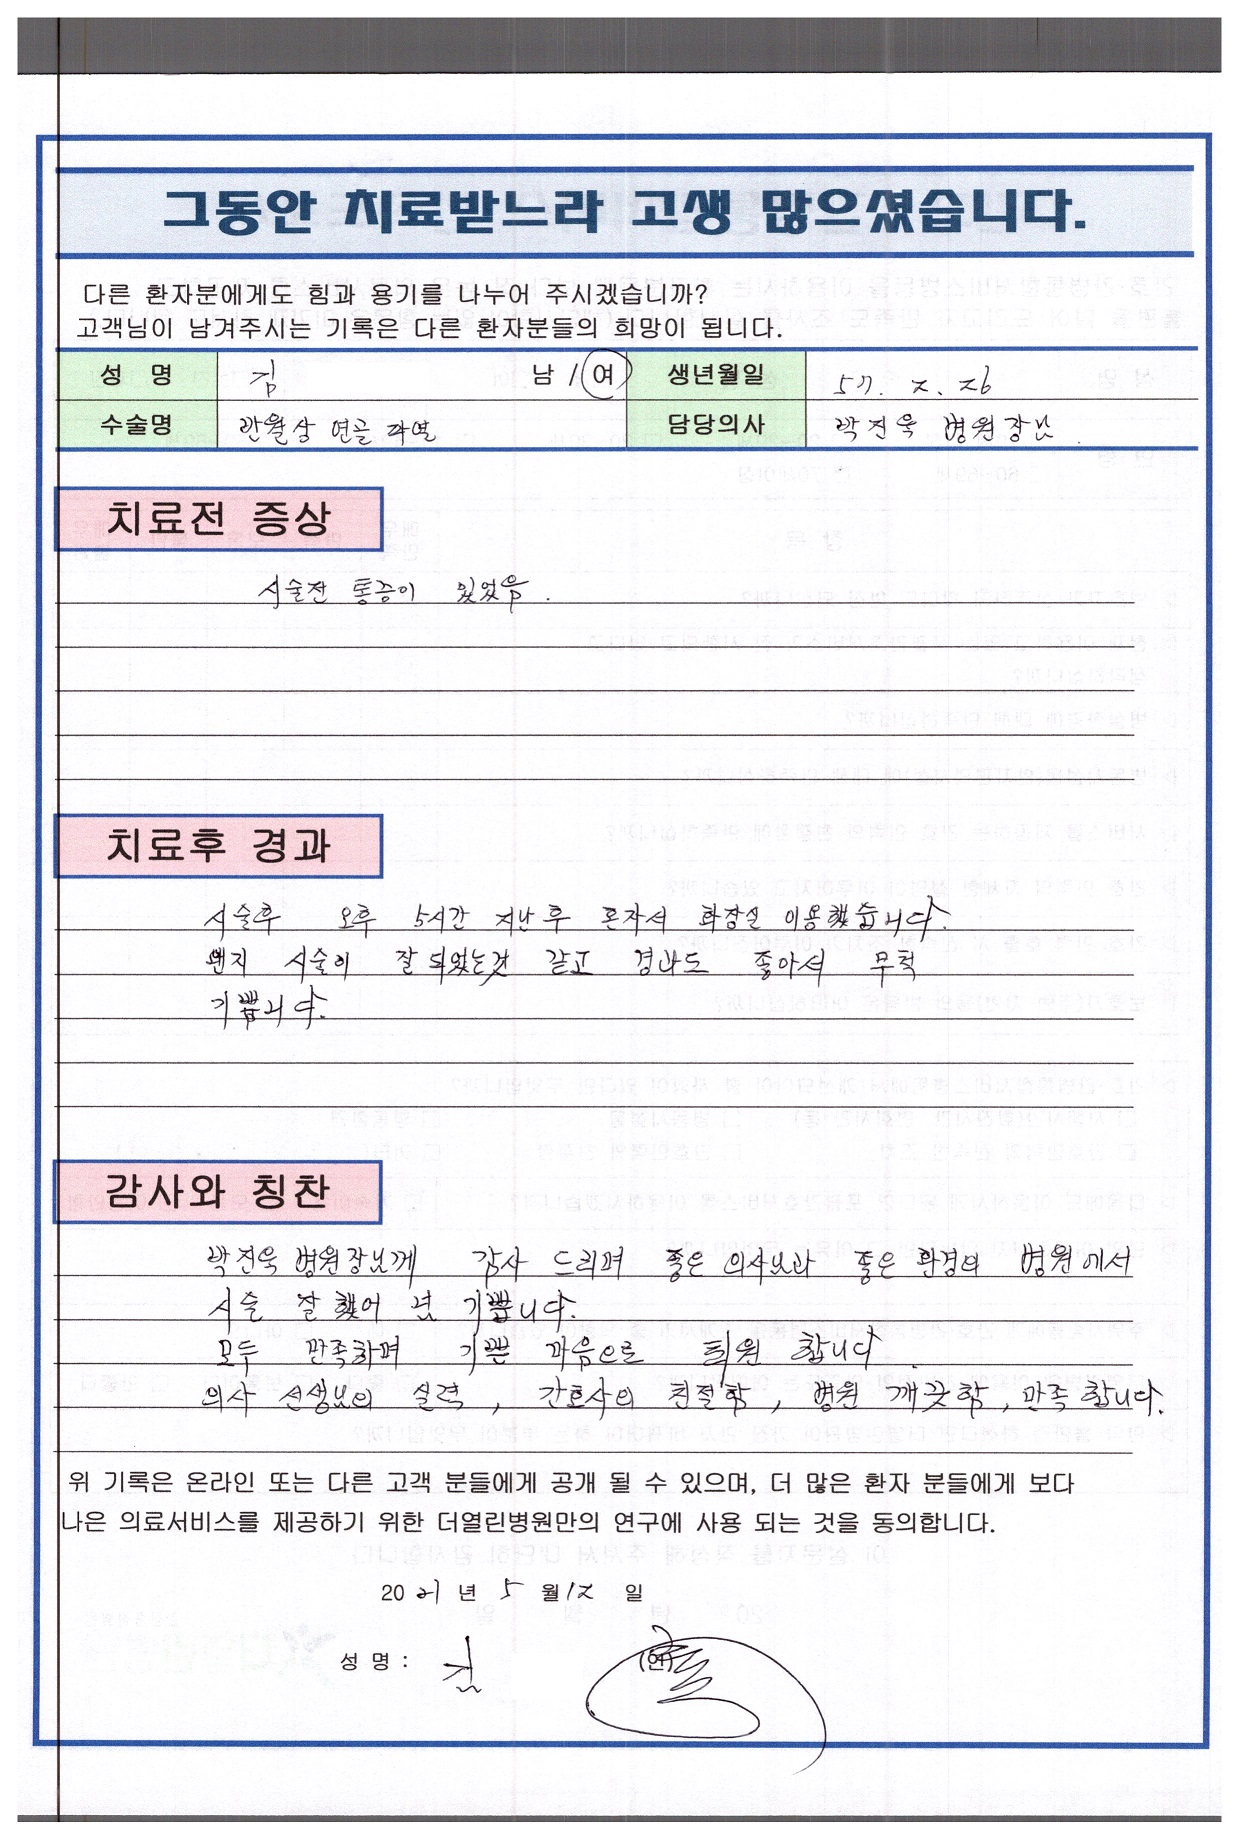 그동안 치료받느라 고생 많으셨습니다.
다른 환자분에게도 힘과 용기를 나누어 주시겠습니까?
고객님이 남겨주시는 기록은 다른 환자분들의 희망이 됩니다.
성 명 김 남 / 여 생년월일 57. 2. 26
수술명 반월상 연골 파열 담당의사 박진욱 병원장님.
치료전 증상
시술전 통증이 있었음.
치료후 경과
시술후 오후 5시간 지난후 혼자서 화장실 이용했습니다.
왠지 시술이 잘 되었는것 같고 경과도 좋아서 무척
기쁩니다.
감사와 칭찬
박진욱 병원장님께 감사 드리며 좋은 의사님과 좋은 환경의 병원에서
시술 잘 했어 넘 기쁩니다.
모두 만족하며 기쁜 마음으로 퇴원 합니다.
의사 선생님의 실력, 간호사의 친절함, 병원 깨끗함, 만족 합니다.
위 기록은 온라인 또는 다른 고객 분들에게 공개 될 수 있으며, 더 많은 환자 분들에게 보다
나은 의료서비스를 제공하기 위한 더열린병원만의 연구에 사용 되는 것을 동의합니다.
2021년 5월 12일
성 명 : 김 (인)